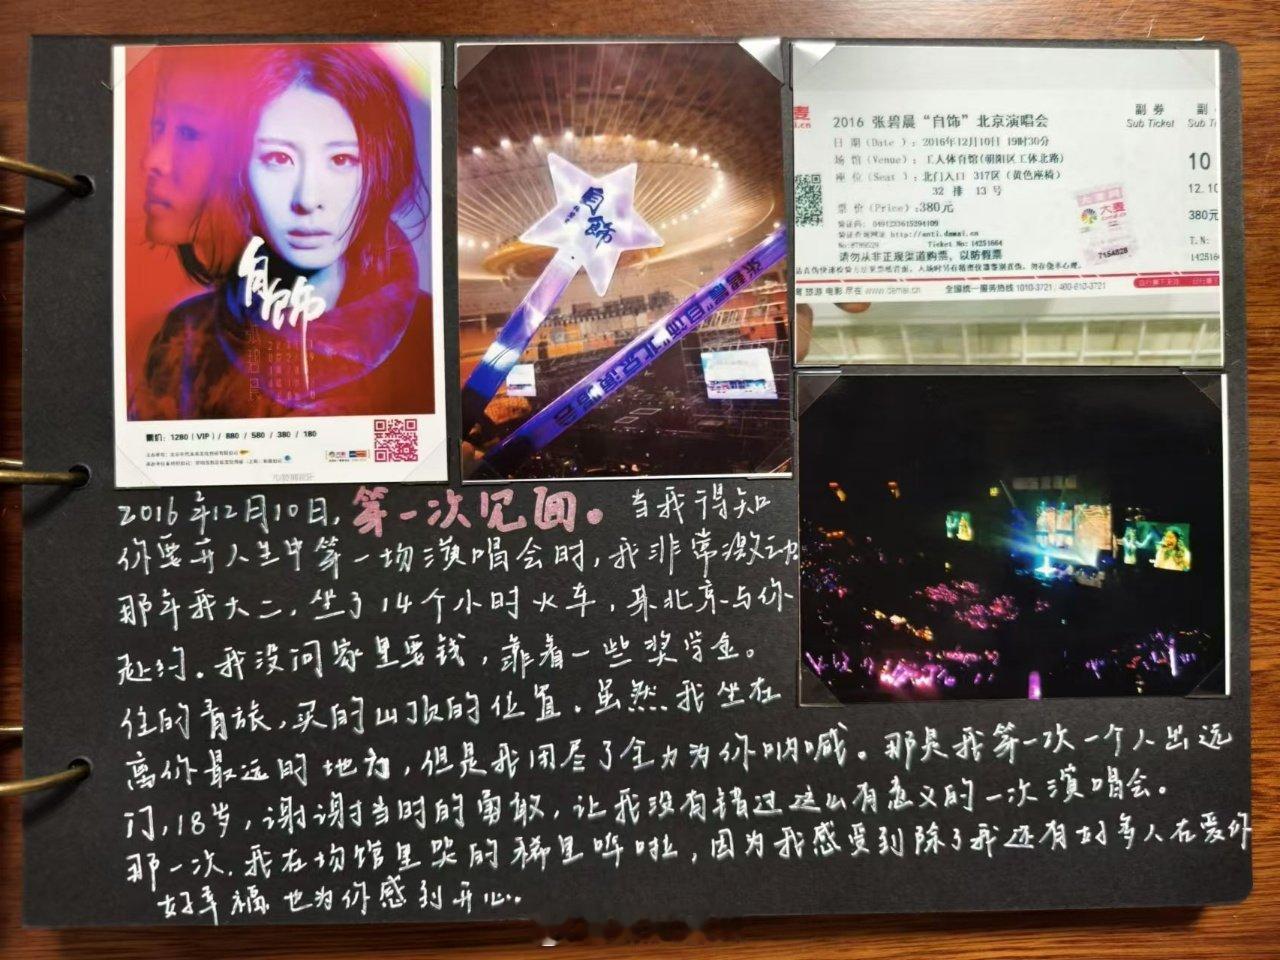 自饰
張碧晨
票价：1280（VIP）/ 880 / 580 / 380 / 180
自饰
2016 张碧晨“自饰”北京演唱会
日 期（Date）：2016年12月10日 19时30分
场 馆（Venue）：工人体育馆(朝阳区工体北路)
座 位（Seat）：北门入口 317区（黄色座椅）
32 排 13 号
票 价（Price）:380元
验证码: 0491233615294109
验证查询网址 http://anti.damai.cn
No:8799529 Ticket No:14251664
请勿从非正规渠道购票，以防假票
旅游 电影 尽在 www.damai.cn 全国统一服务热线 1010-3721 / 400-610-3721
大麦
7154828
副 券
Sub Ticket
副
Sub Ti
10
12.10
380元
T.N:
142516
2016年12月10日，第一次见面。当我得知
你要开人生中第一场演唱会时，我非常激动
那年我大二，坐了14个小时火车，来北京与你
赴约。我没问家里要钱，靠着一些奖学金。
住的青旅，买的山顶的位置。虽然我坐在
离你最远的地方，但是我用尽了全力为你呐喊。那是我第一次一个人出远
门，18岁，谢谢当时的勇敢，让我没有错过这么有意义的一次演唱会。
那一次，我在场馆里哭的稀里哗啦，因为我感受到除了我还有好多人在爱你
好幸福也为你感到开心。